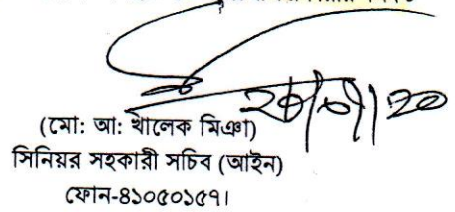 (মো: আ: খালেক মিঞা)
সিনিয়র সহকারী সচিব (আইন)
ফোন-৪১০৫০১৫৭।